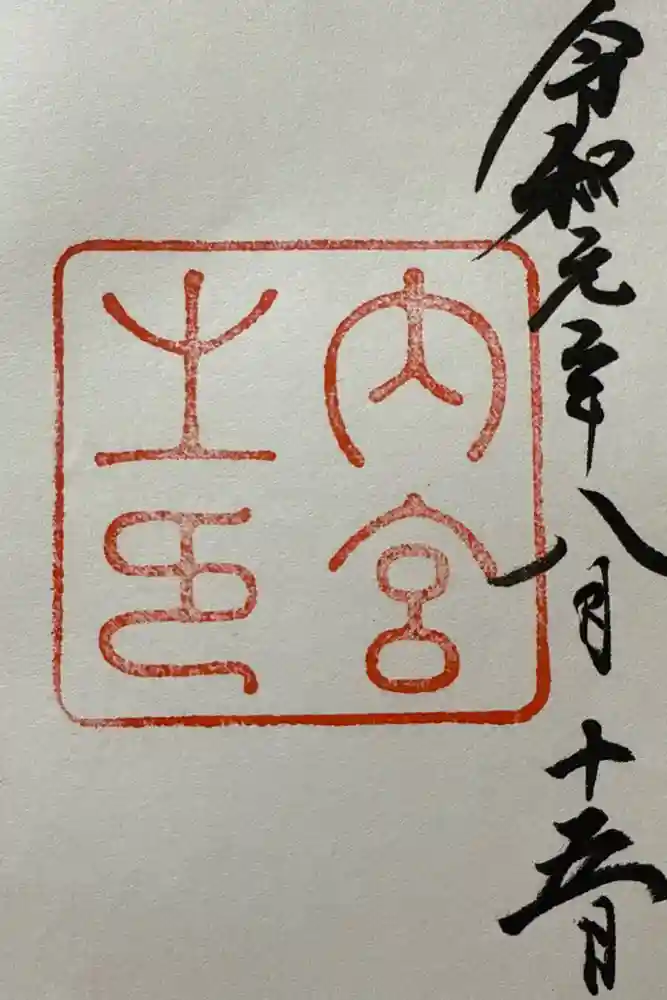 令和元年八月十五日
内宮
之印